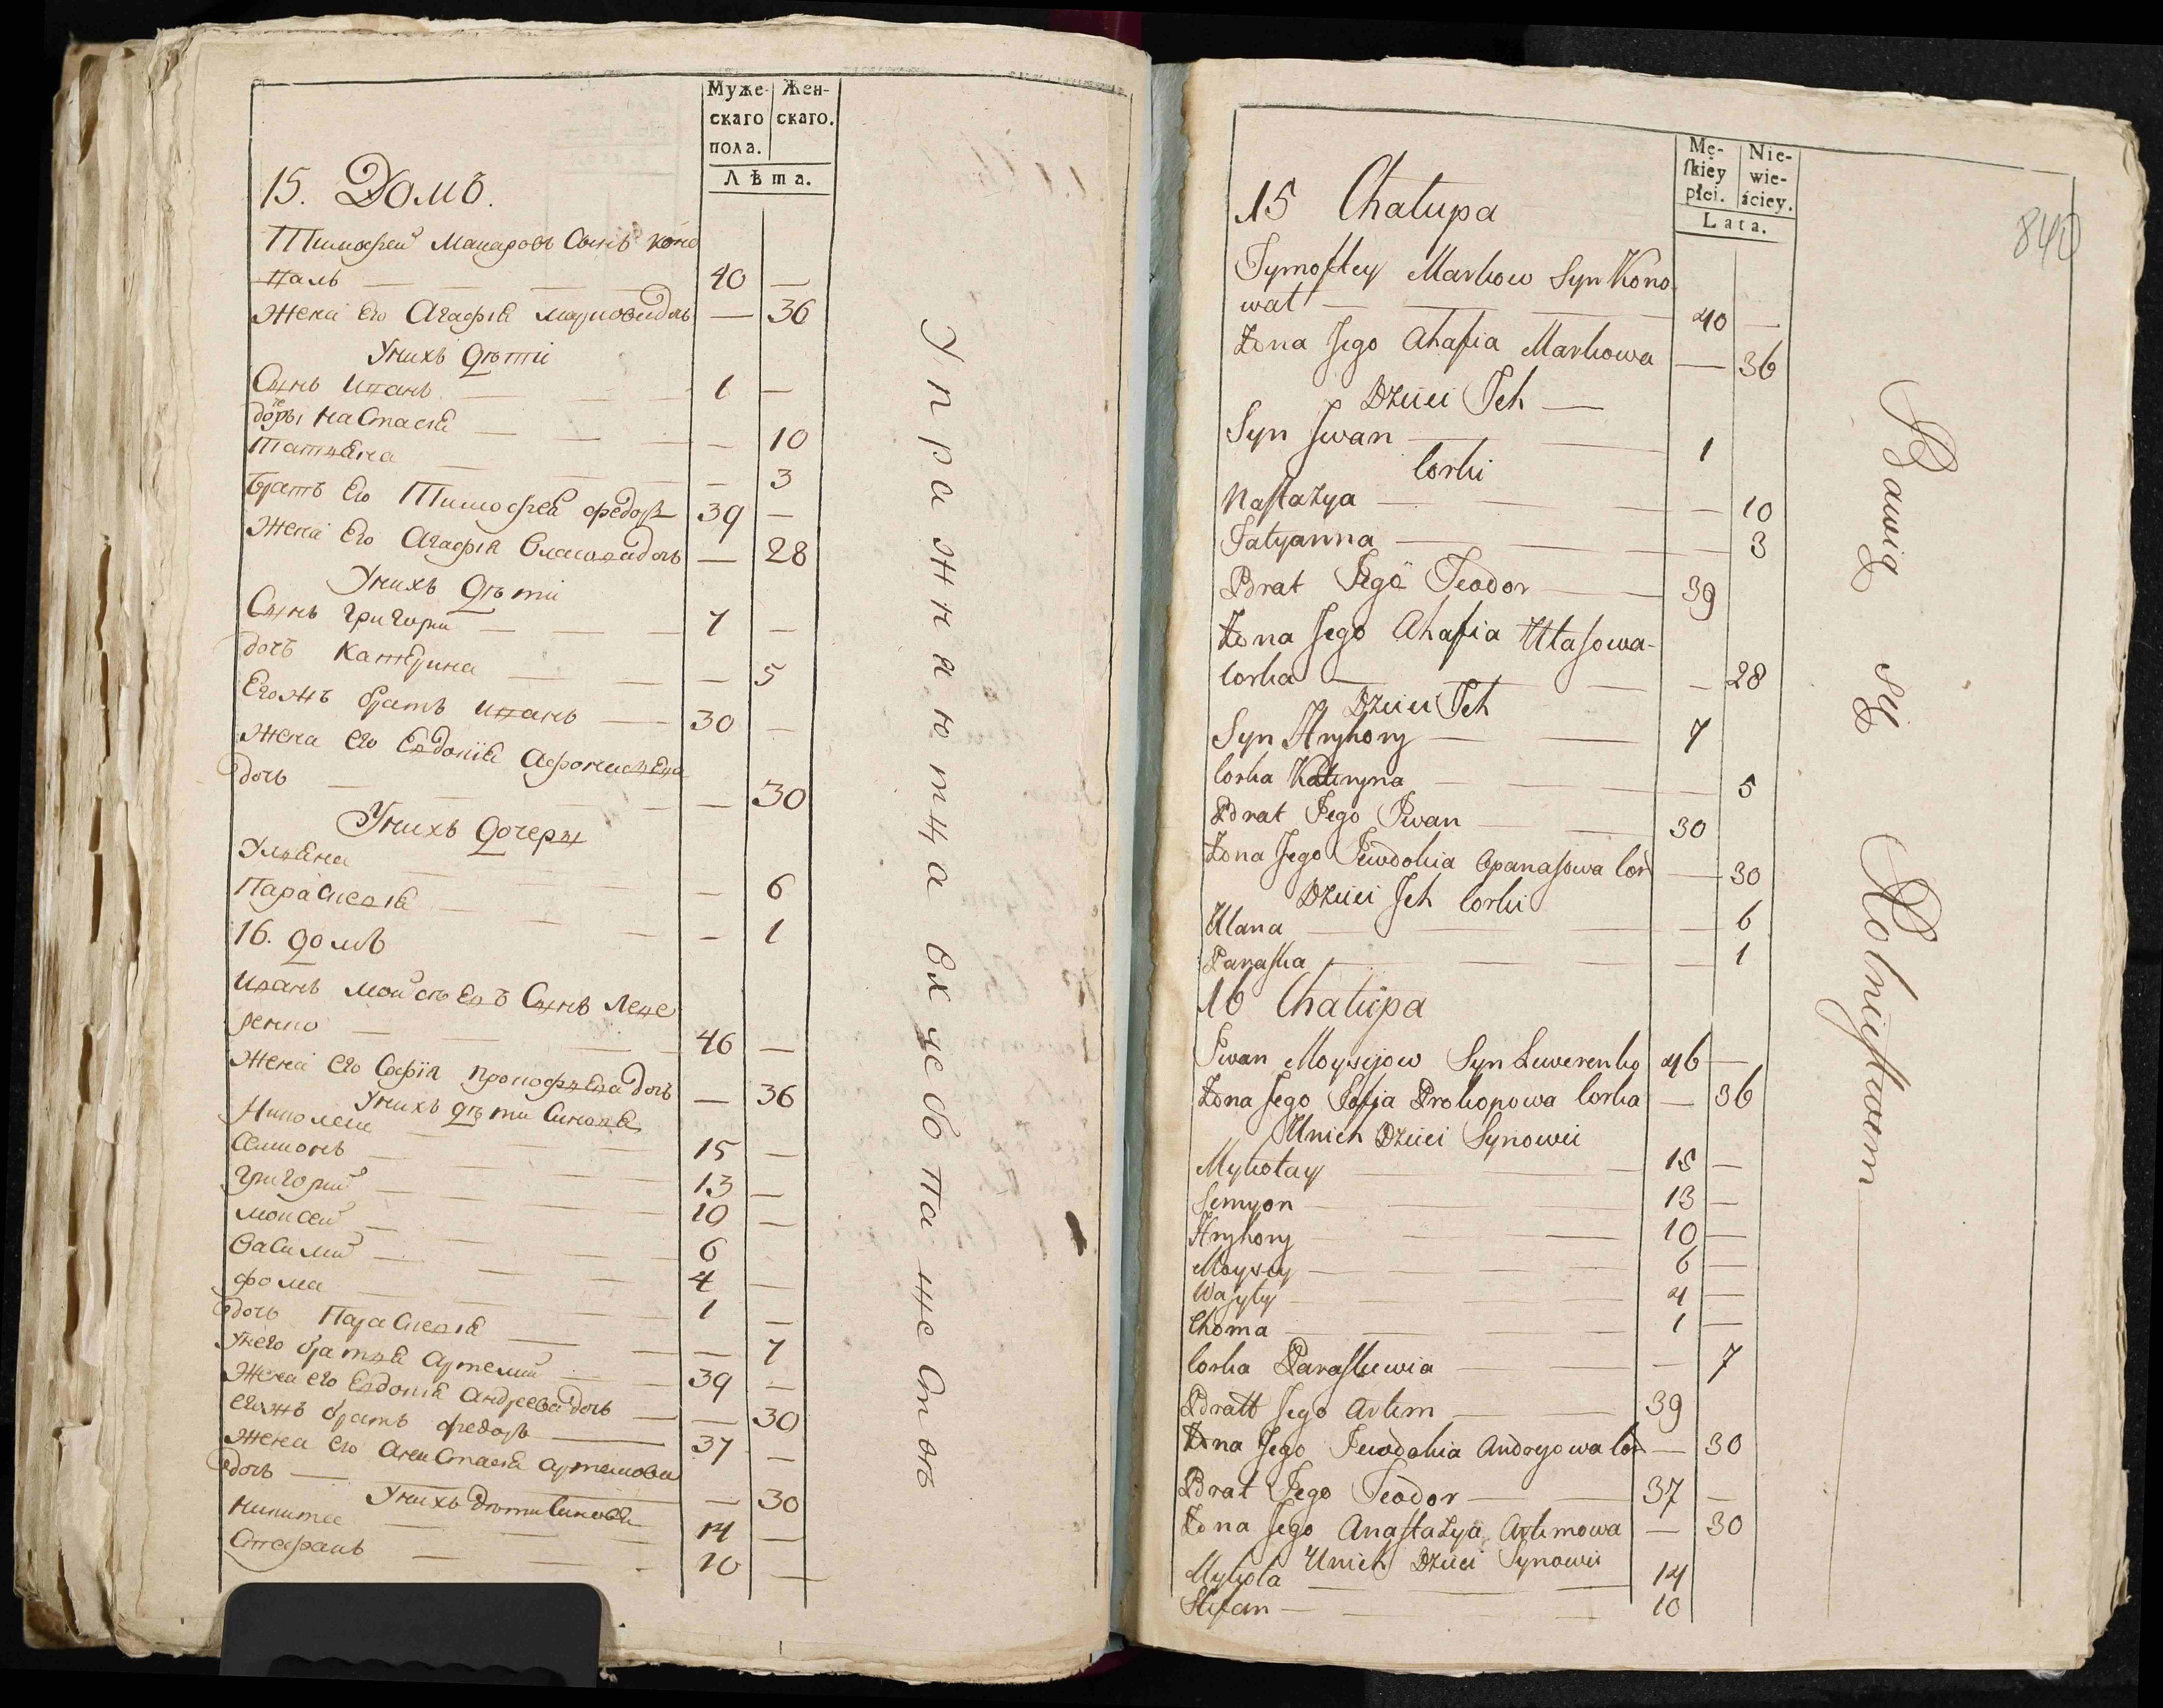 Муже-
скаго
пола.
Жен-
скаго.
Лѣта.
15. Домъ.
Тимофей Макаровъ Сынъ коно
валъ — 40 —
Жена Его Агафiя марковадочь — 36
Унихъ Дѣти
Сынъ Иванъ — 1 —
дочери Настасiя — 10
Татияна — 3
братъ Его Тимофея федоръ 39 —
Жена Его Агафiя власовадочь — 28
Унихъ Дѣти
Сынъ григорий — 7 —
дочь Катерина — 5
Егожъ братъ иванъ — 30 —
жена его Евдокiя Афонасиева
дочь — 30
Унихъ дочери
Улияна — 6
Парасковiя — 1
16. домъ
Иванъ моисѣевъ Сынъ Леве
ренко — 46 —
жена его Софiя прокофиева дочь — 36
Унихъ дѣти Синовя
Николаи — 15 —
Симонъ — 13 —
григорий — 10 —
моисей — 6
Василий — 4 —
фома — 1 —
дочь Парасковiя — 7
Унего братия Артемий — 39 —
жена его Евдокiя Андреева дочь — 30
егожъ братъ федоръ — 37 —
жена его Анастасiя Артемова
дочь — 30
Унихъ дѣти Синовя
Никита — 14 —
Стефанъ — 10 —
Упражняютца вхлебопашествѣ
840
Mę-
skiey
płci.
Nie-
wie-
ściey.
Lata.
15 Chałupa
Tymoftey Markow Syn Kono
wał — 40 —
Żona Jego Ahafia Markowa — 36
Dzieci Jch —
Syn Jwan — 1
Corki
Nastazya — 10
Tatyanna — 3
Brat Jego Teodor — 39
Żona Jego Ahafia Ułasowa-
Corka — 28
Dzieci Jch
Syn Hryhory — 7
Corka Kateryna — 5
Brat Jego Jwan — 30
Żona Jego Jewdokia Opanasowa Cor — 30
Dzieci Jch Corki
Ulana — 6
Paraska — 1
16 Chałupa
Jwan Moysijow Syn Lewerenko 46 —
Żona Jego Sofia Prokopowa Corka — 36
Unich Dzieci Synowie
Mykołay — 15 —
Semyon — 13 —
Hryhory — 10 —
Moysey — 6 —
Wasyly — 4 —
Choma — 1 —
Corka Paraskewia — 7
Bratt Jego Artem — 39
Żona Jego Jewdokia Andryowa Cor — 30
Brat Jego Teodor — 37 —
Żona Jego Anastazya Artemowa — 30
Unich Dzieci Synowie
Mykola — 14
Stefan — 10
Bawią się Rolnictwem